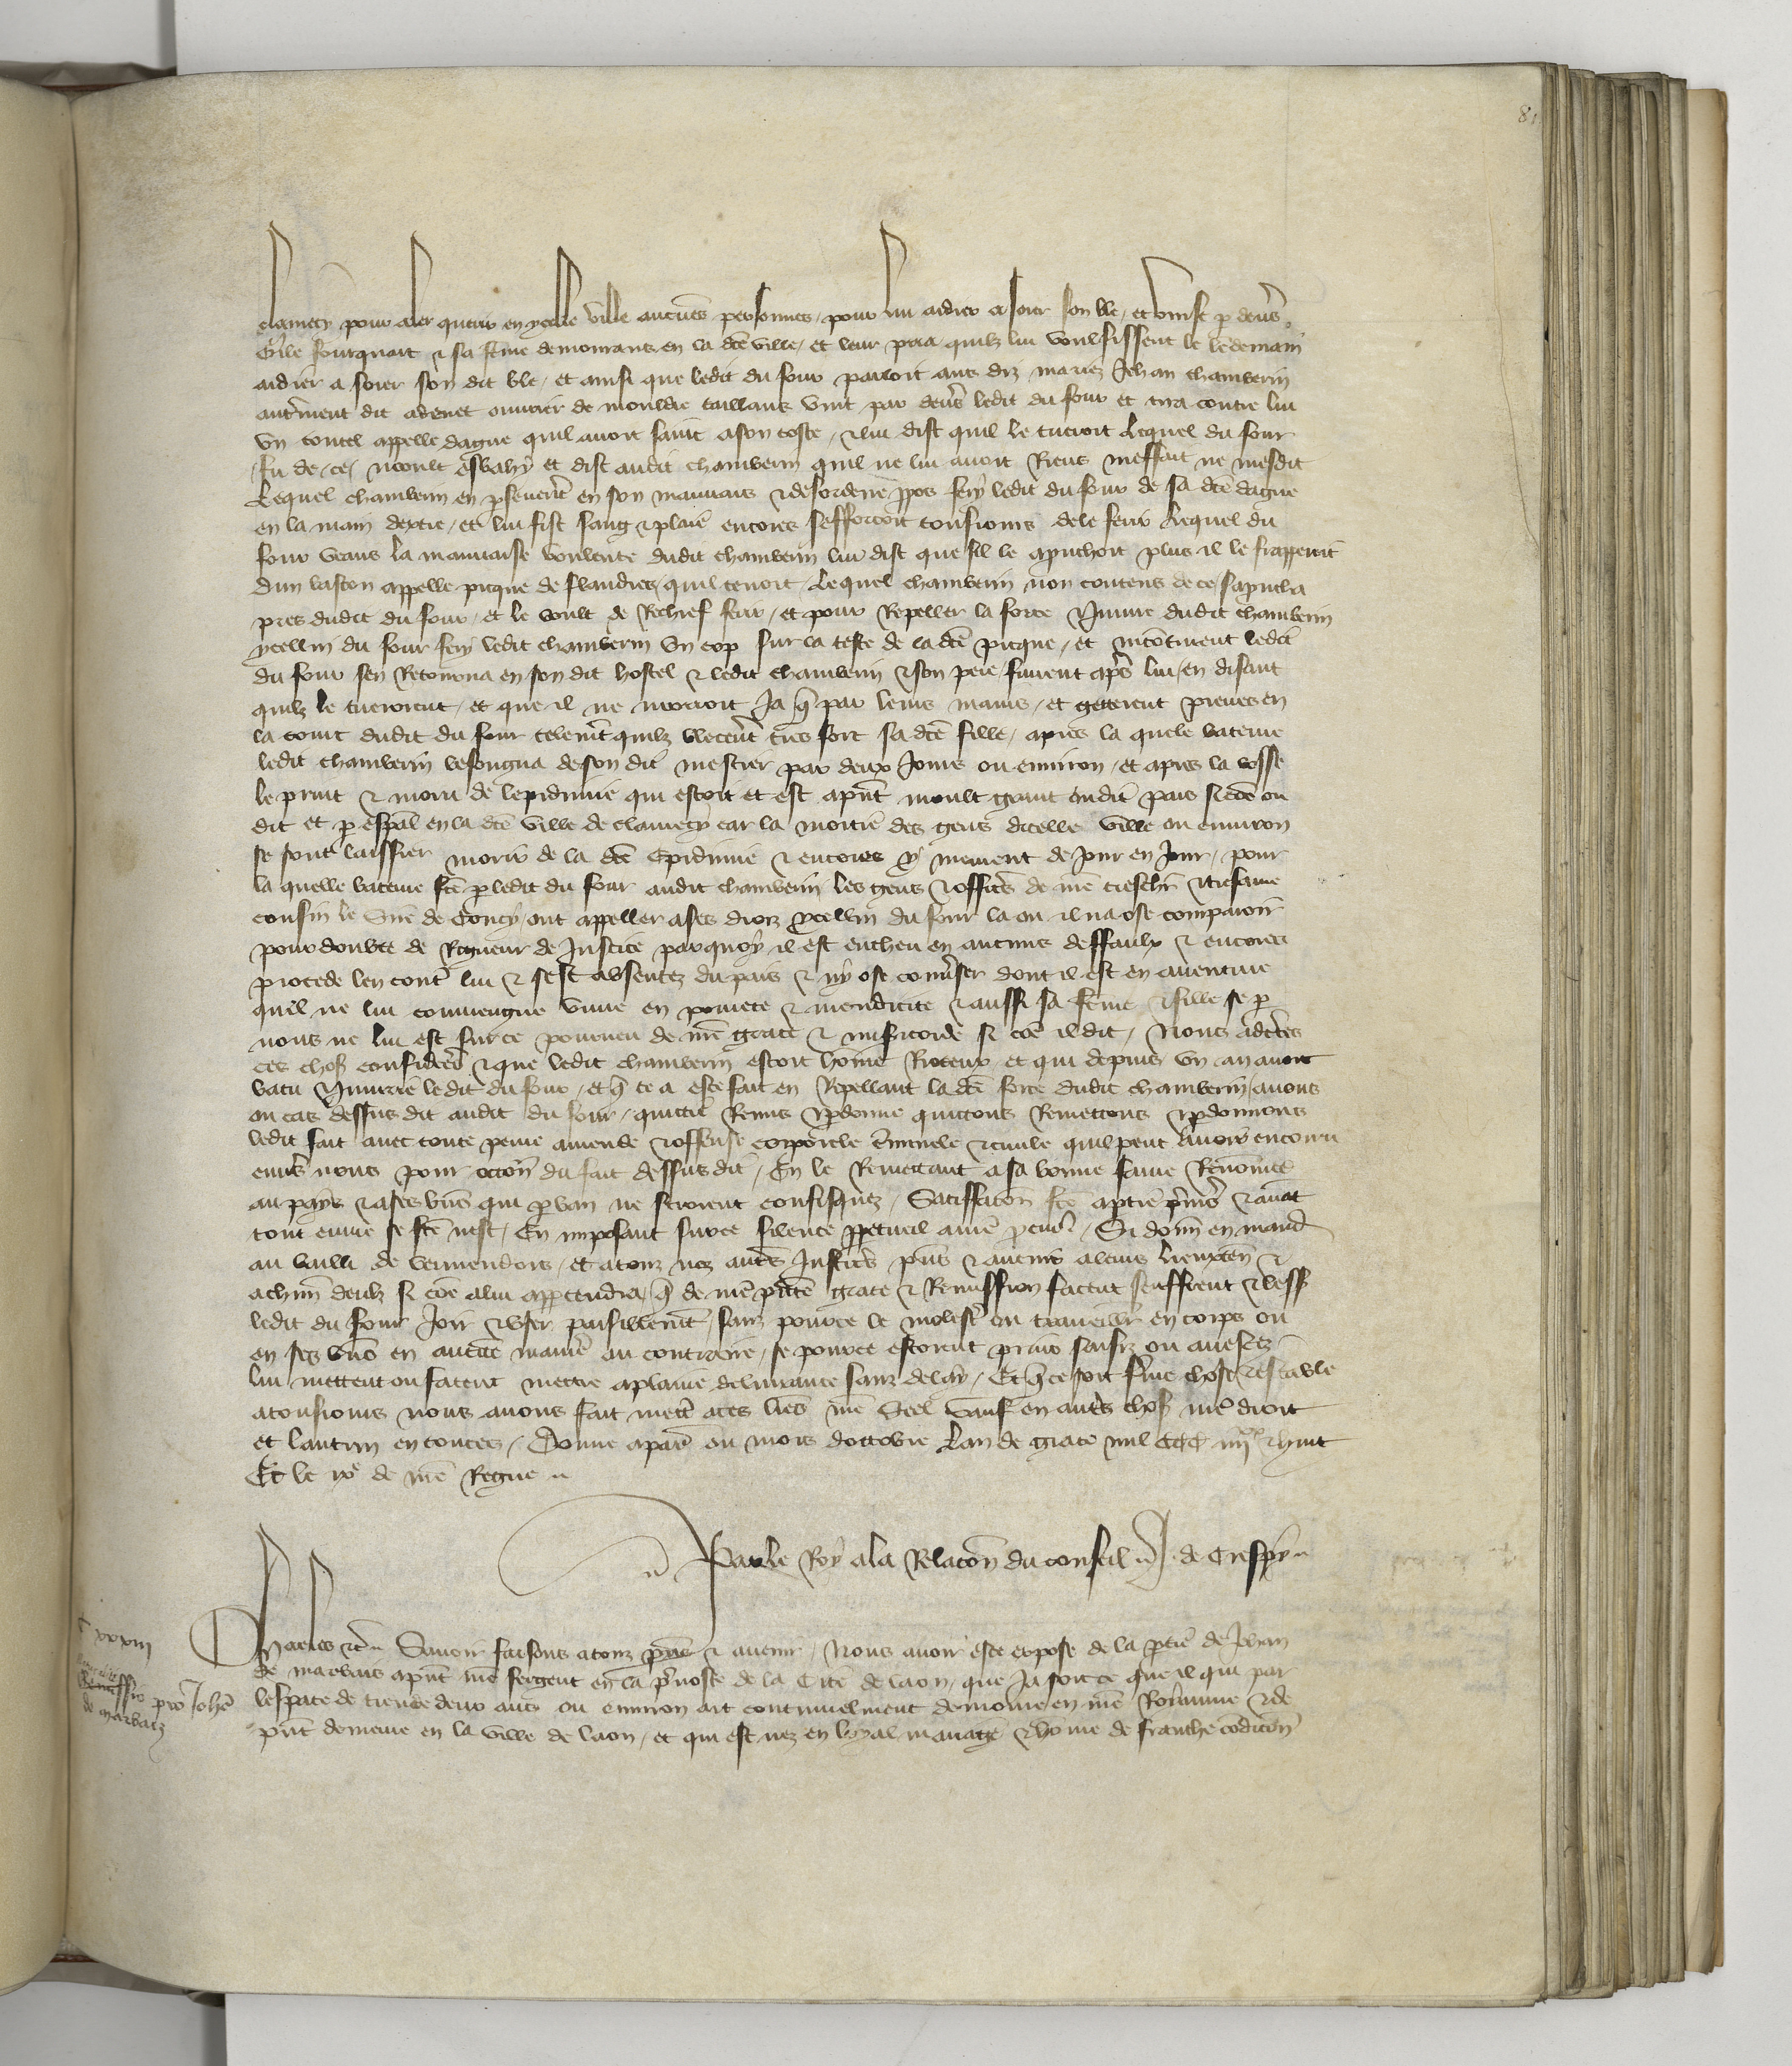 81
clamecy pour aler querir en ycelle ville aucunes personnes, pour lui aidier a soier son ble, et vinst p devs
Gile fourquart & sa feme demourans en la dce ville, et leur pria quilz lui voulsissent le lendemain
aidier a soier son dit ble, et ainsi que ledit du four parloit aus diz mariez Jehan chamberin
autrement dit advenet ouvrier de mouldre taillans vint par devs ledit du four et tira contre lui
un coutel appelle dague quil avoit saint a son coste, & lui dist quil le tueroit Lequel du four
fu de ce moult esbahy et dist audit chamberin quil ne lui avoit Riens meffait ne mesdit
Lequel chamberin en psevert en son mauvais & desordene ppos fery ledit du four de sa dce dague
en la main dextre, et lui fist sang & plaie encores sefforcoit tousiours de le ferir Lequel du
four veans la mauvaise voulente dudit chamberin lui dist que sil le apuchoit plus il le frapperoit
dun baston appelle picque de flandres, quil tenoit, Lequel chamberin non contens de ce sapucha
pres dudit du four, et le voult de Rechief ferir, et pour Repeller la force & Iniure dudit chamberin
ycellui du four fery ledit chamberin un cop sur la teste de la dce picque, et incontinent ledit
du four sen Retourna en son dit hostel & ledit chamberin & son pere furent aps lui, en disant
quilz le tueroient, et que il ne morroit Ja q par leurs mains, et getterent pierres en
la court dudit du four telemt quilz blecert tres fort sa dce fille, apres la quele bateure
ledit chamberin besongna de son dit mestier par deux Jours ou environ, et apres la bosse
le prinst & moru de lepidimie qui estoit et est apnt moult grant ou dit pais si coe on
dit et p espal en la dce ville de clamecy car la moitie des gens dicelle ville ou environ
se sont laissier morir de la dce Epidimie & encores y meurent de jour en jour, pour
la quelle bateure fce p ledit du four audit chamberin les gens & officrs de nre treschr & tresame
cousin le Sire de Coucy ont appeller a ses droiz ycellui du four la ou il na ose comparoir
pour doubte de Rigueur de Justice parquoy il est encheu en aucuns deffaulx & encores
procede len contr lui & sest absentez du pais & ny ose converser dont il est en aventure
quil ne lui conviengne vivre en povrete & mendicite & aussi sa feme & fille se p
nous ne lui est sur ce pourveu de nre grace & misericorde si coe il dit, Nous adcrtes
ces choses considerees & que ledit chamberin estoit home Rioteux et qui depuis un an avoit
batu & Iniurie ledit du four, et q ce a este fait en Repellant la dce force dudit chamberin avons
ou cas dessus dit audit du four, quitte Remis & pdonne quittons Remettons & pdonnons
ledit fait avec toute peine amende & offense corporele criminele & civile quil peut avoir encouru
envs nous pour occon du fait dessus dit, En le Remettant a sa bonne fame Renomee
au pays & a ses bns qui p ban ne seroient confisquez, Satiffacon fce a ptie pmiers & avat
tout euvre se fce nest, En imposant sur ce silence ppetuel a nre pcur, Si donn en mand
au bailli de vermendois, et a touz nos autrs Justicrs pns & avenir a leurs lieuxten &
a chun deulz si coe a lui appartendra, q de nre pnte grace & Remission facent seuffrent & less
ledit du four Joir & user paisiblemt, sanz pour ce le molestr ou traveillr en corps ou
en ses bns en aucune maniere au contraire, se pour ce estoient prins saisiz ou arrestez
lui mettent ou facent mettre a plaine delivrance sanz delay, Et q ce soit ferme chose & estable
a tousiours nous avons fait mettr a ces lres nre Seel Sauf en autrs choses nre droit
et lautrui en toutes, Donne a paris ou mois doctobre Lan de grace mil CCC iiijxx & huit
Et le ixe de nre Regne
Par le Roy a la Relacon du conseil J. de Crespy
C xxxiij
Remissio pro Johe
de marbaiz
Charles &c Savoir faisons a touz pns & avenir, Nous avoir este expose de la ptie de Jehan
de marbais apnt nre sergent en la prevoste de la Cite de laon, que Ja soit ce que il qui par
lespace de trente deux ans ou environ ait continuelment demoure en nre Royaume & de
pnt demeure en la ville de laon, et qui est nez en loyal mariage & home de franche condicon